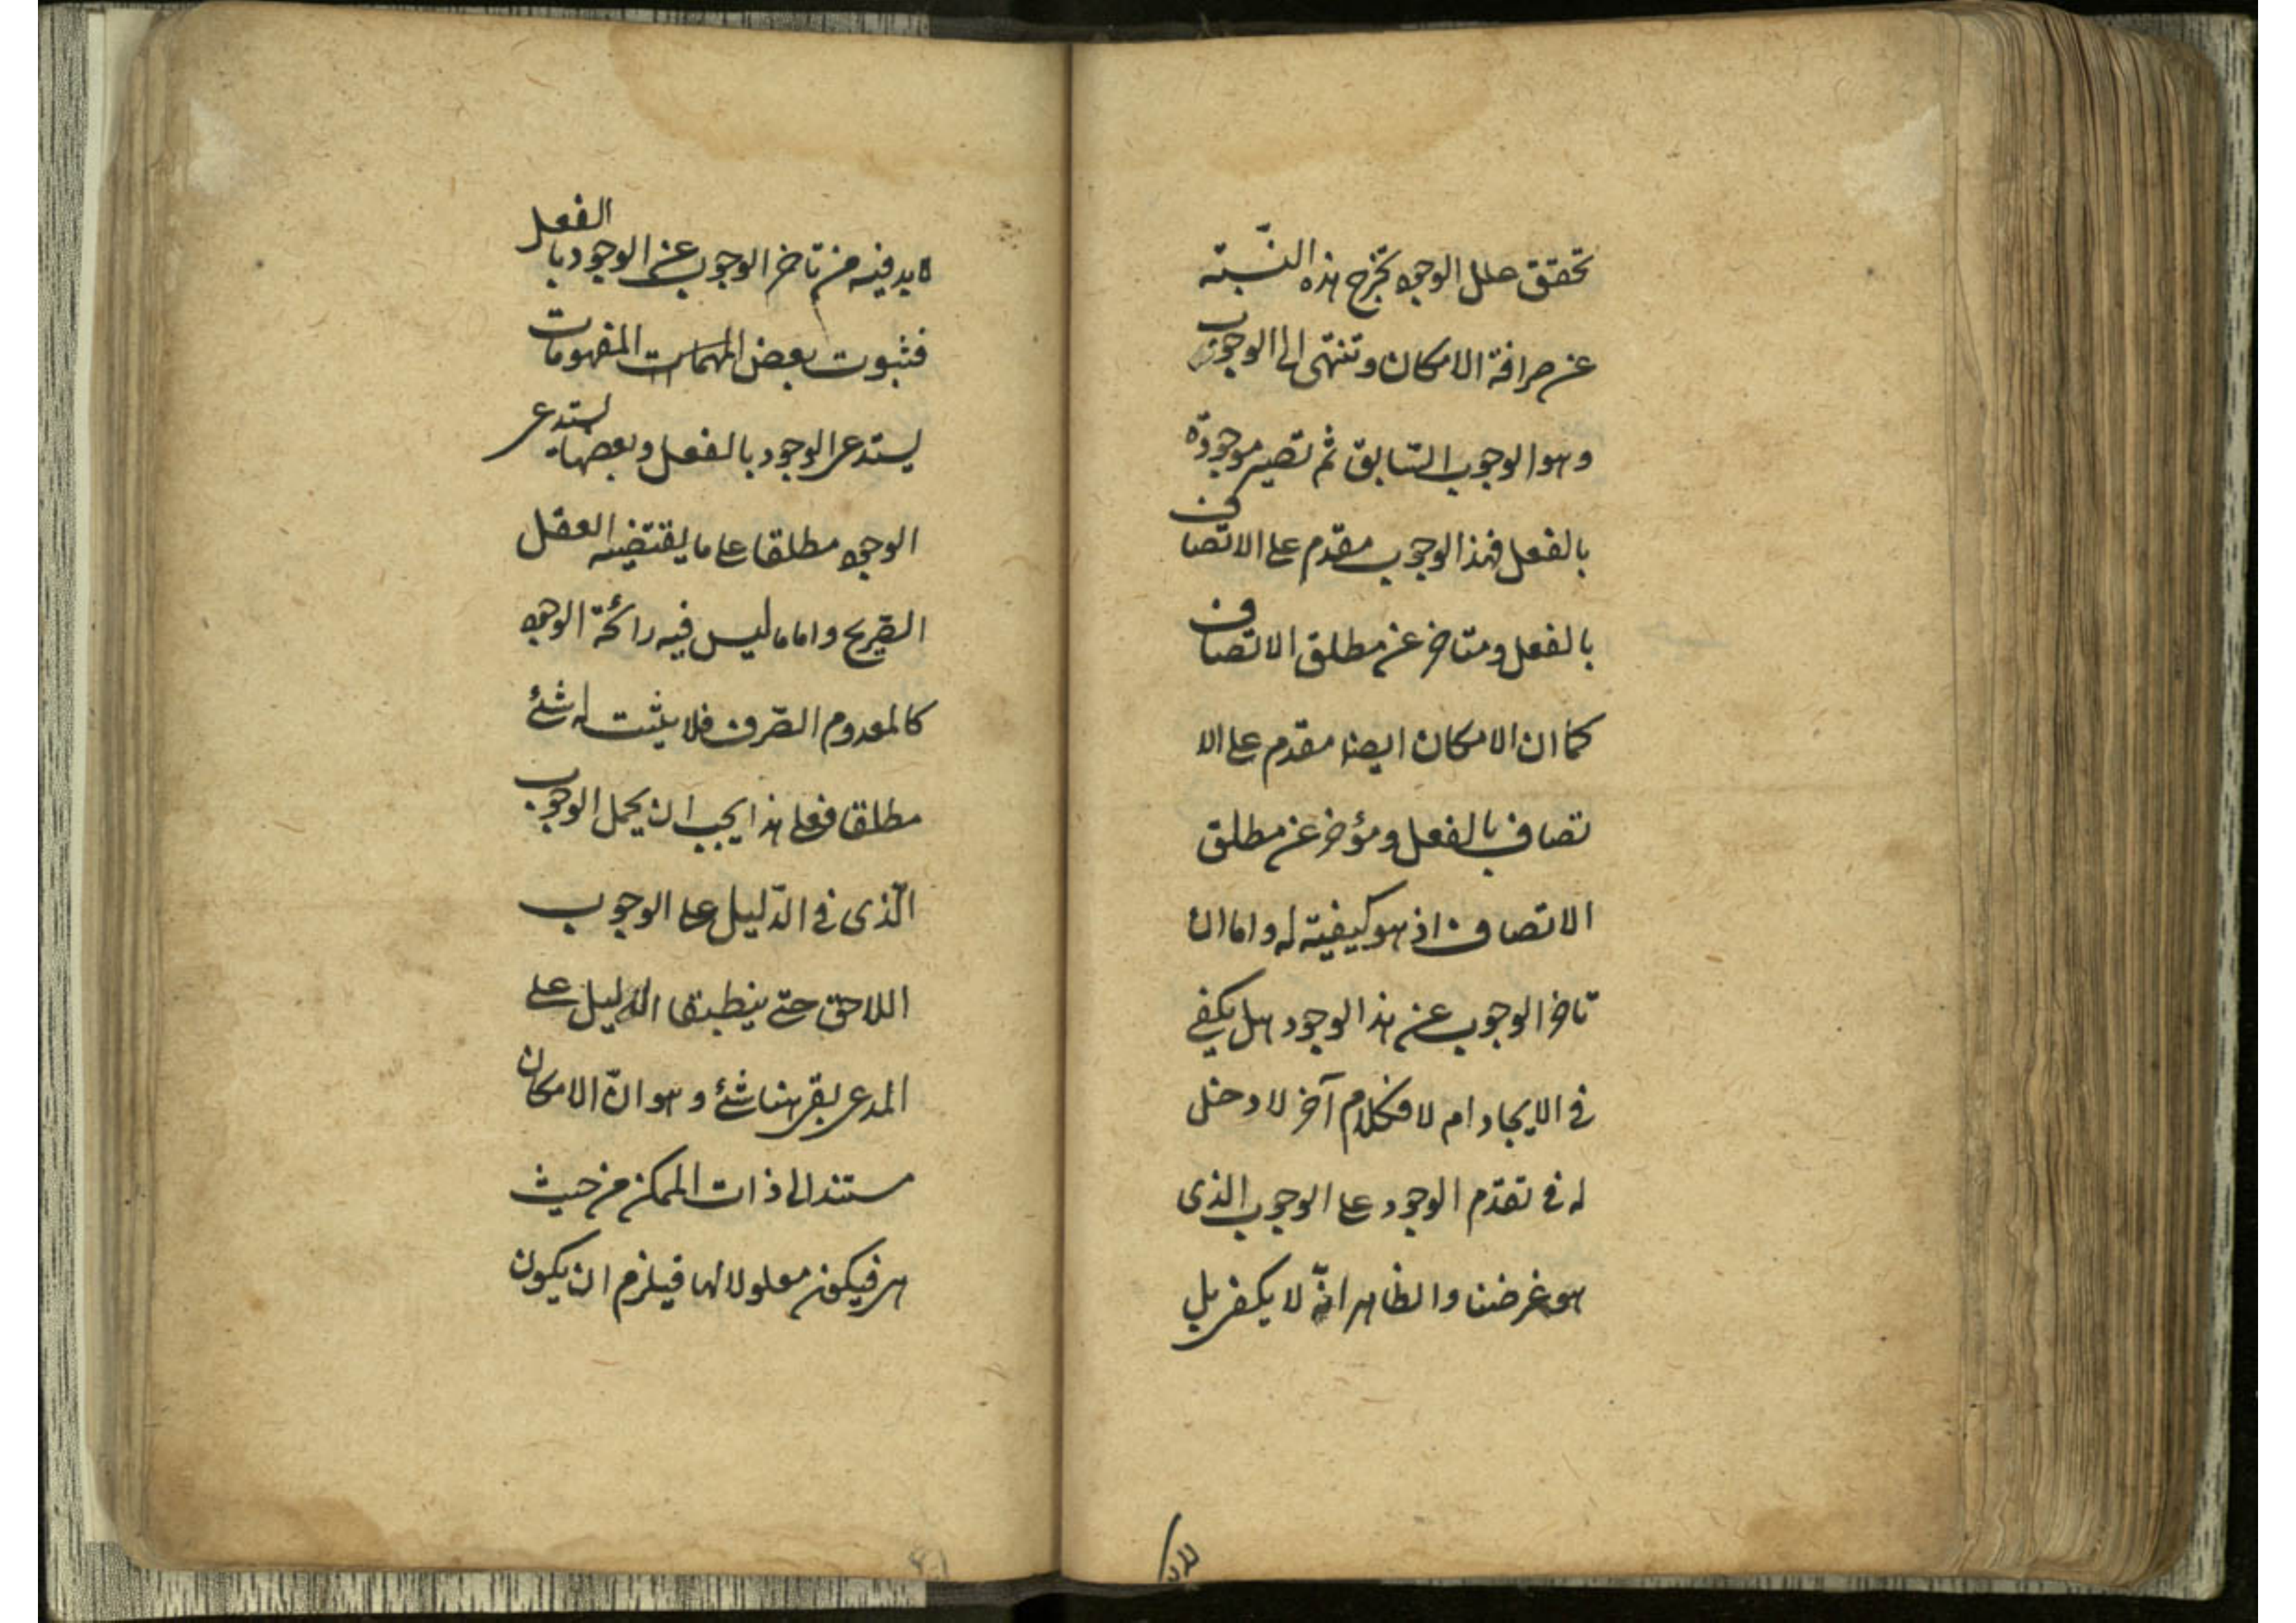 تحقق علل الوجود تخرج هذه النّسبة
عن صرافة الامكان وتنتهى الى الوجوب
وهو الوجوب السّابق ثم تصير موجودة
بالفعل فهذا الوجوب مقدّم على الاتصاف
بالفعل ومتاخر عن مطلق الاتصاف
كما ان الامكان ايضا مقدم على الا
تصاف بالفعل ومؤخر عن مطلق
الاتصاف اذ هو كيفية له واما ان
تاخر الوجوب عن هذا الوجود هل يكفى
فى الايجاد ام لا فكلام آخر لا دخل
له فى تقدّم الوجود على الوجوب الذى
هو غرضنا والظاهر انّه لا يكفى بل
لابد فيه من تاخر الوجوب عن الوجود بالفعل
فثبوت بعض المفهومات
يستدعى الوجود بالفعل وبعضها يستدعى
الوجود مطلقا على ما يقتضيه العقل
الصّريح واما ما ليس فيه رائحة الوجود
كالمعدوم الصّرف فلا يثبت له شئ
مطلقا فعلى هذا يجب ان يحمل الوجوب
الّذى فى الدّليل على الوجوب
اللاحق حتى ينطبق الدليل على
المدعى بقى هنا شئ وهو انّ الامكان
مستند الى ذات الممكن من حيث
هى فيكون معلولا لها فيلزم ان يكون